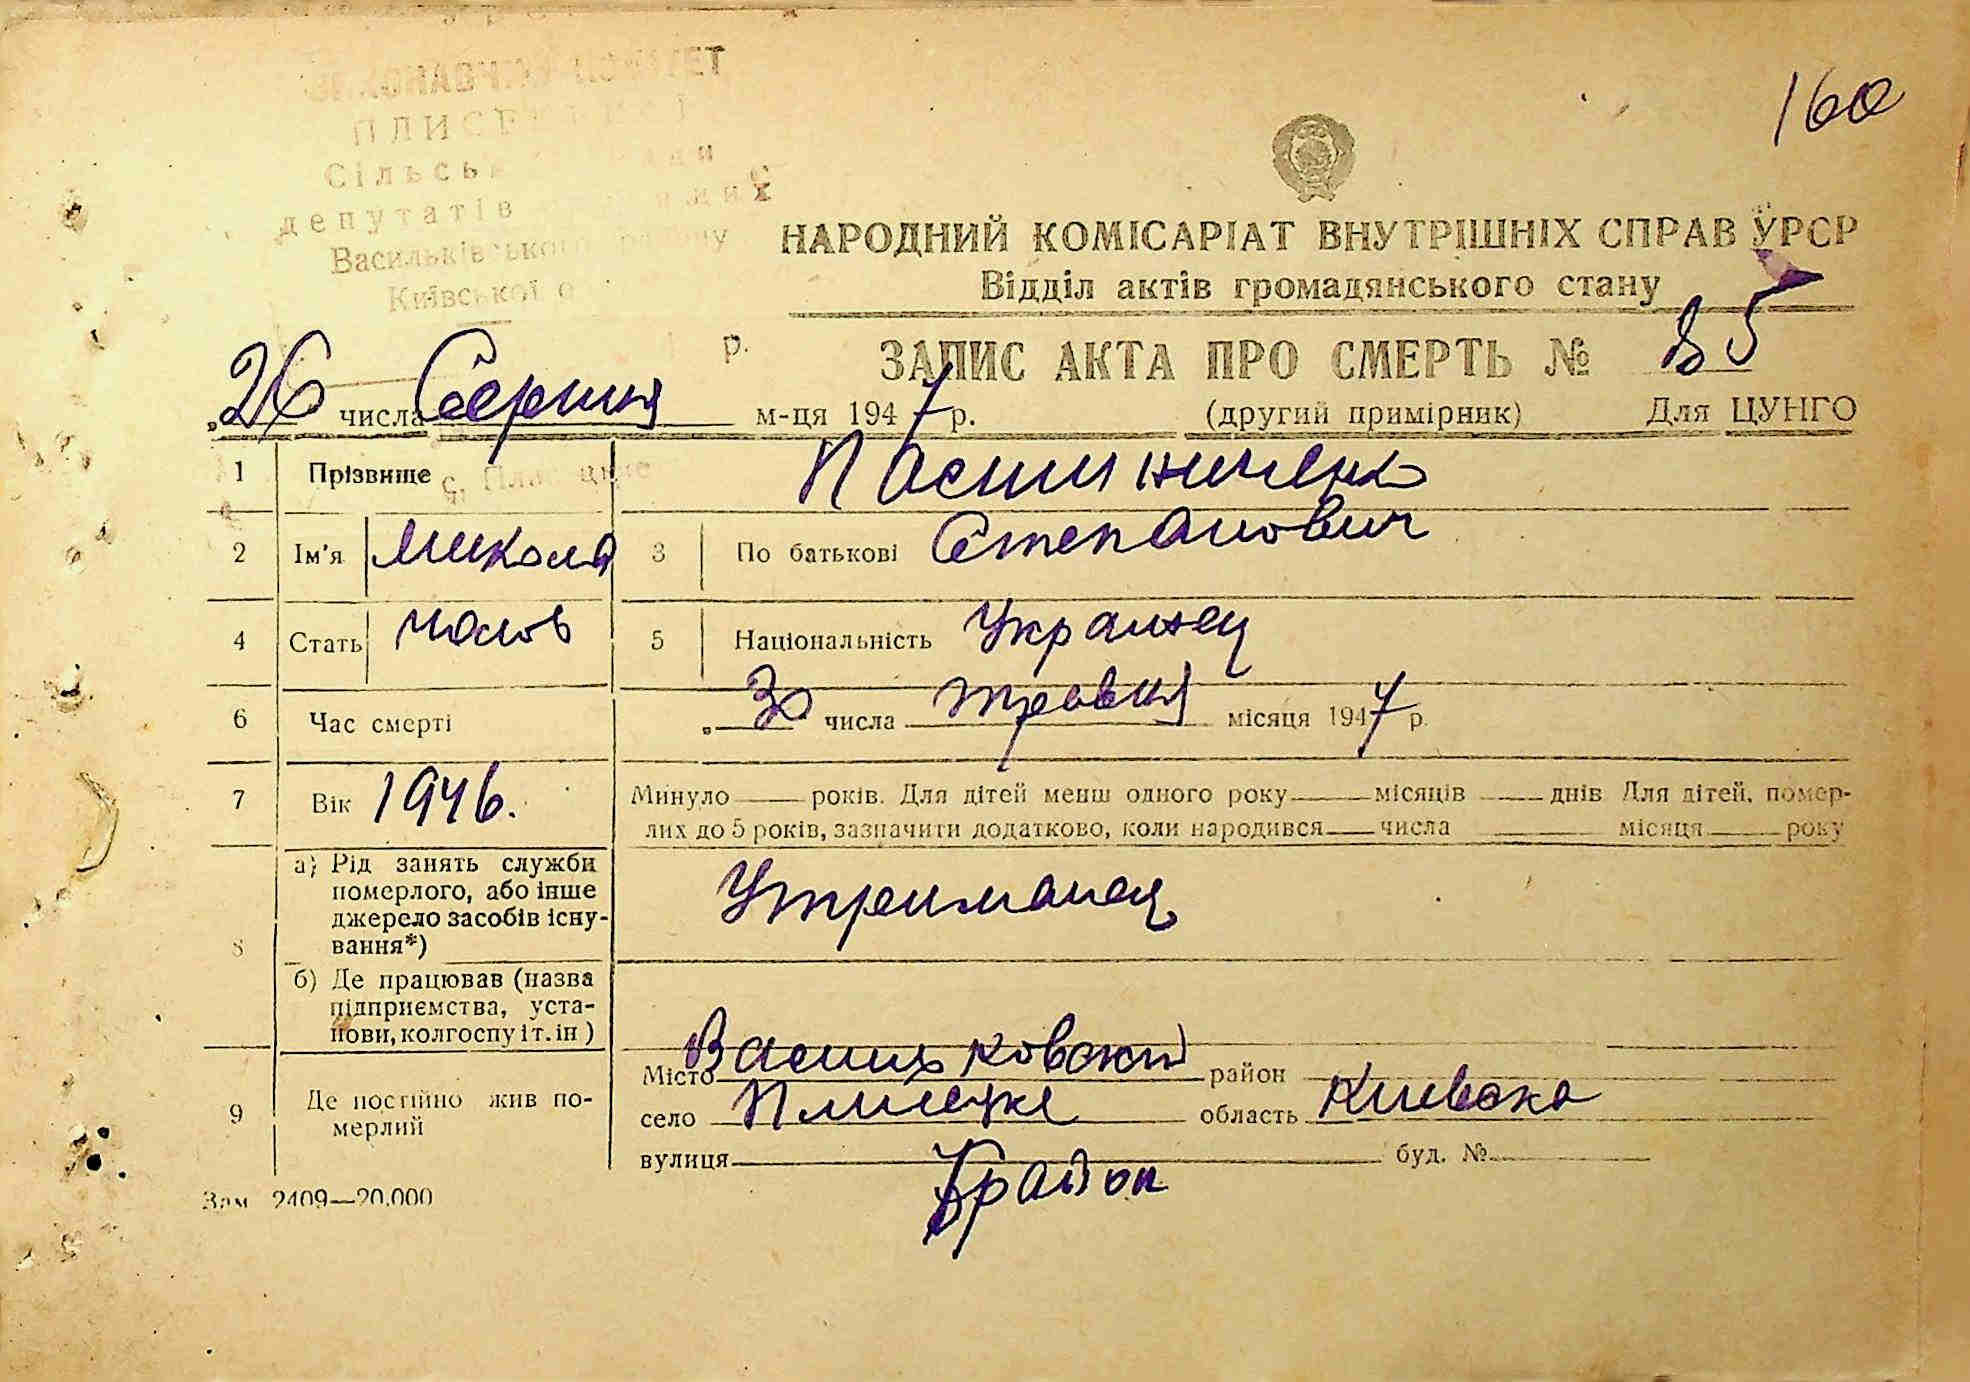 160
ПЛИСЕ
Сільськ
депутатів
Васильківського району
Київської о
НАРОДНИЙ КОМІСАРІАТ ВНУТРІШНІХ СПРАВ УРСР
Відділ актів громадянського стану
р.
ЗАПИС АКТА ПРО СМЕРТЬ № 85
„26 числа Серпня м-ця 1947 р. (другий примірник) Для ЦУНГО
1 Прізвище
2 Ім'я Микола 3 По батькові Степанович
4 Стать чолов 5 Національність Украинец
6 Час смерті „30 числа травня місяця 1947 р.
7 Вік 1946. Минуло років. Для дітей менш одного року місяців днів Для дітей, помер-
лих до 5 років, зазначити додатково, коли народився числа місяця року
8 а) Рід занять служби
померлого, або інше
джерело засобів існу-
вання*)
Утриманец
б) Де працював (назва
підприємства, уста-
нови, колгоспу і т. ін)
9 Де постійно жив по-
мерлий
Місто Васильковский район
село Плисецке область Киевска
вулиця буд. №
Зам 2409—20.000